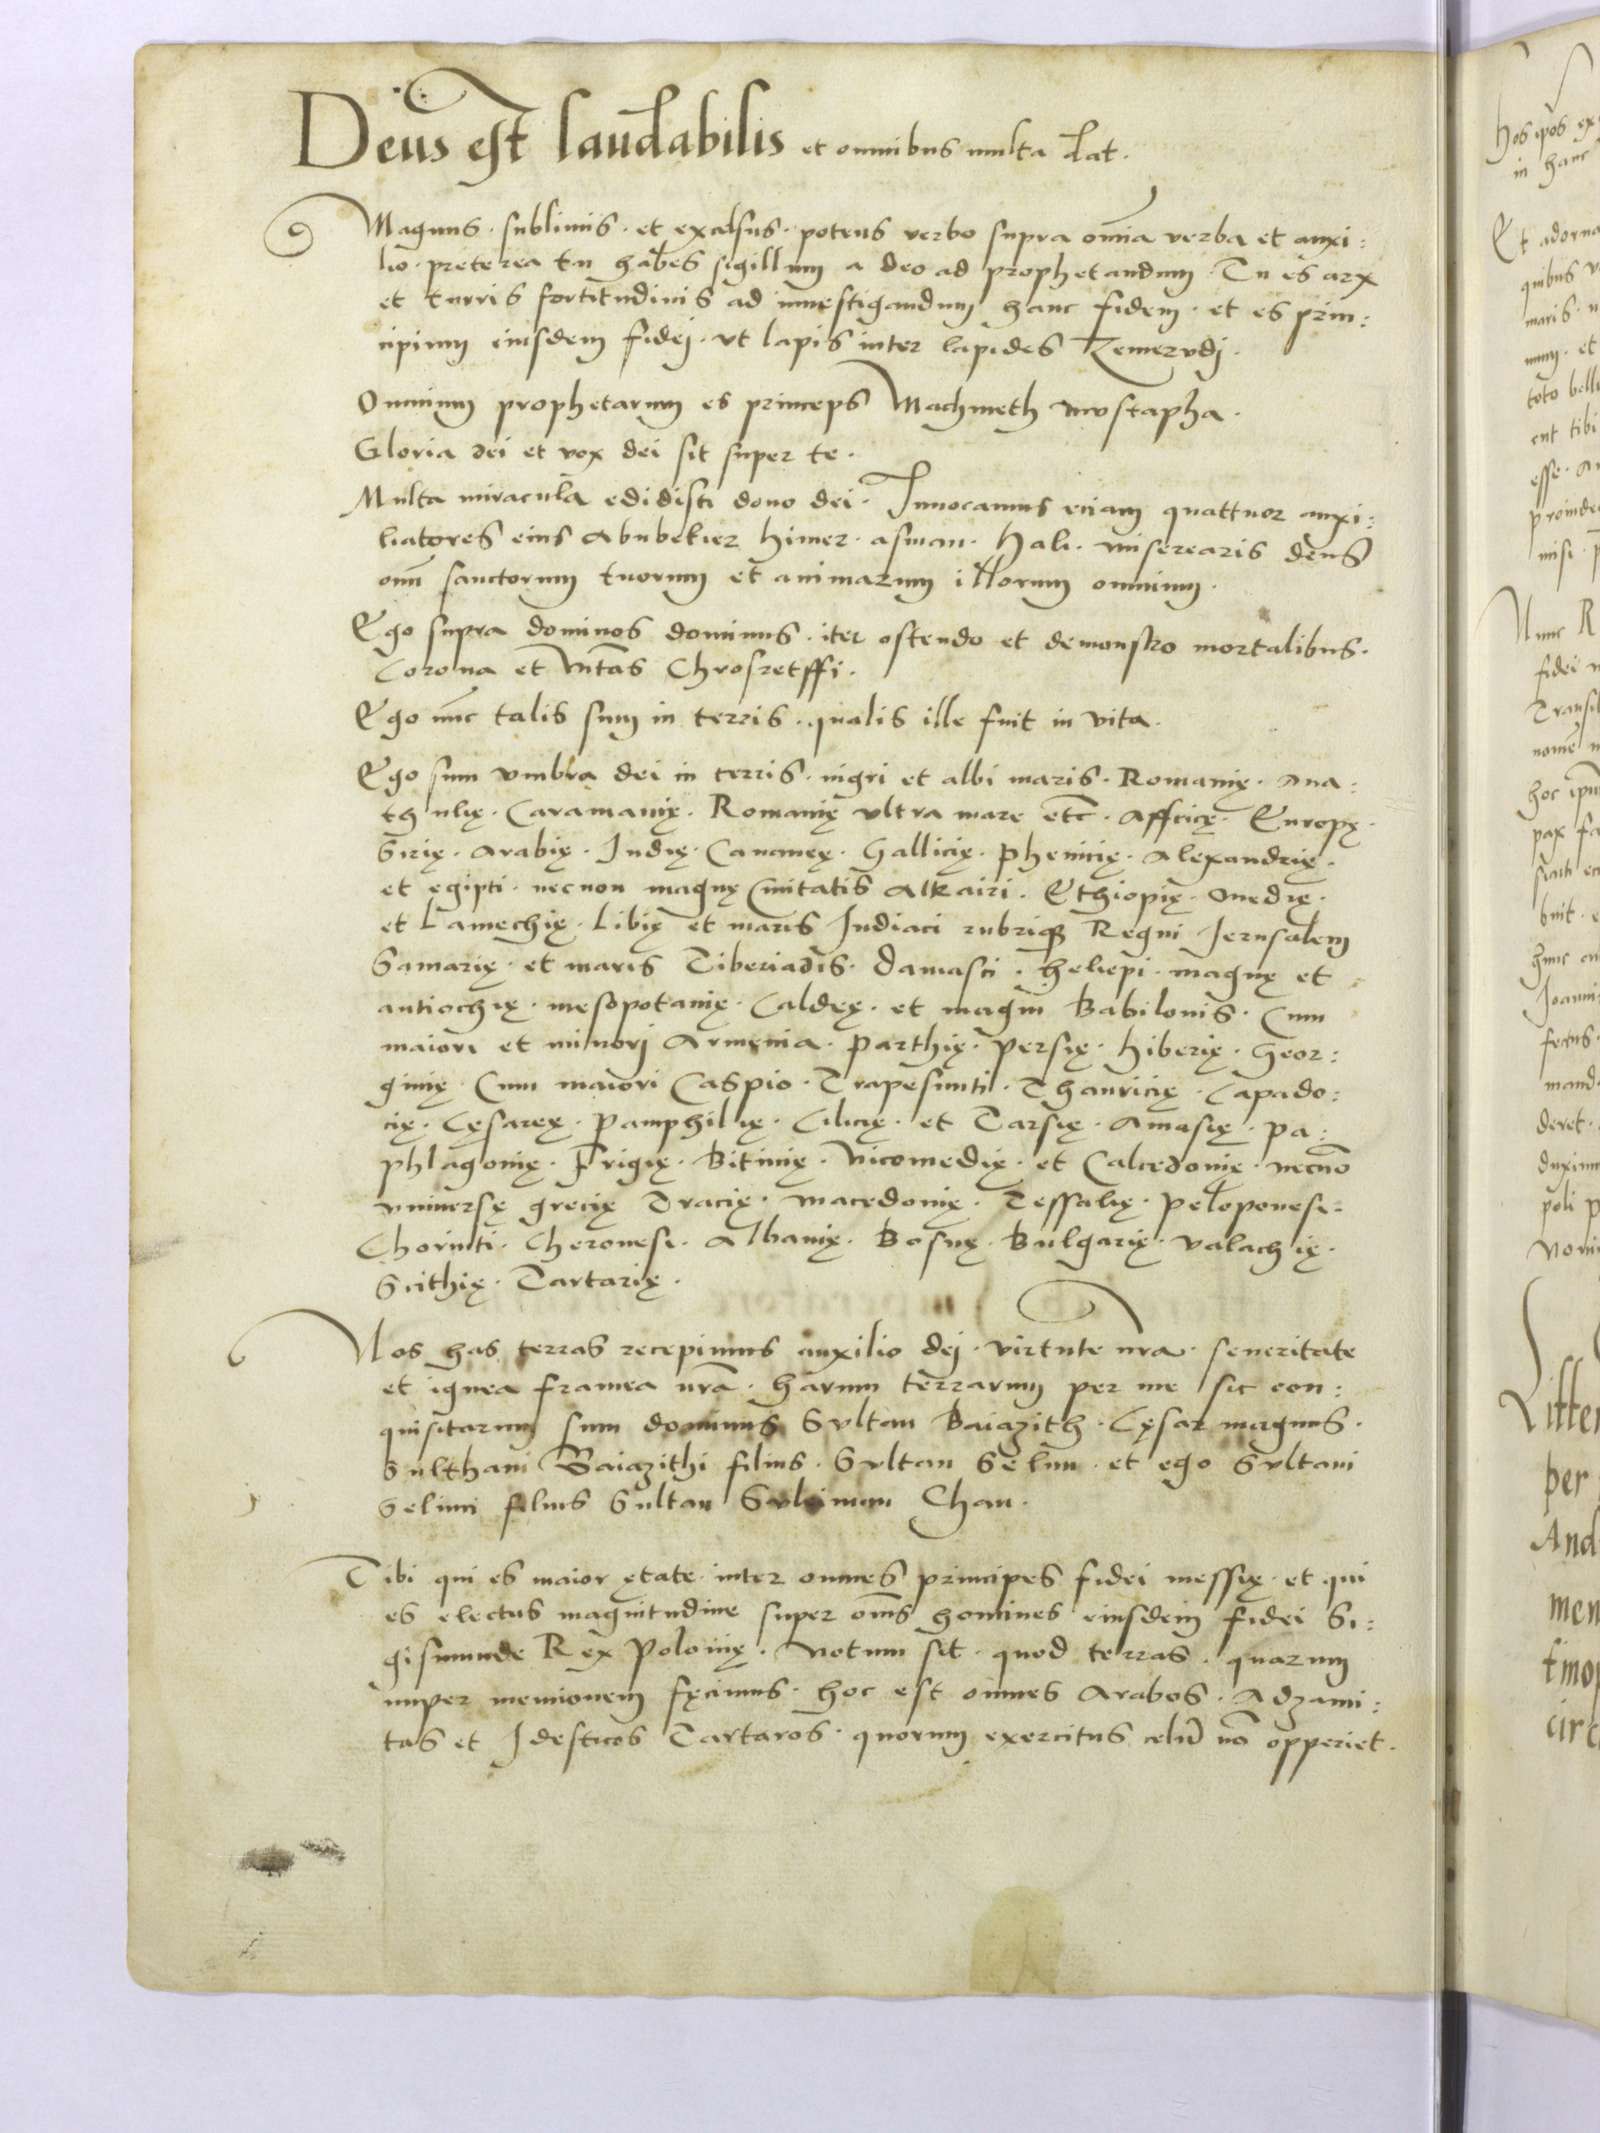 Deus est laudabilis et omnibus multa dat.
Magnus · sublimis · et excelsus · potens verbo supra omnia verba et auxi:
lio · preterea tu habes sigillum a deo ad prophetandum · Tu es arx
et turris fortitudinis ad inuestigandum hanc fidem · et es prin:
cipium eiusdem fidej · vt lapis inter lapides Zemerudj ·
Omnium prophetarum es princeps Machmeth mostapha ·
Gloria dei et vox dei sit super te ·
Multa miracula edidisti dono dei · Innocamus eciam quattuor auxi:
liatores eius Abubekier Himer · asman · Hali · miserearis deus
oīm sanctorum tuorum et animarum illorum omnium ·
Ego supra dominos dominus · iter ostendo et demonstro mortalibus ·
Corona et vnitas Chrosretffi ·
Ego nūc talis sum in terris · qualis ille fuit in vita ·
Ego sum vmbra dei in terris · nigri et albi maris · Romanię · Ana:
thulię · Caramanię · Romanię vltra mare etc · Affricę · Europę ·
Sirię · Arabię · Indię · Cananeę · Gallicię · phenicię · Alexandrię ·
et egipti · necnon magnę Ciuitatis Alkairi · Ethiopię · medię ·
et Lamechię · Libię et maris Indiaci rubriq3 Regni Jerusalem
Samarię · et maris Tiberiadis · damasci · heliepi · magnę et
antiochię · mesopotanię · Caldeę · et magni Babilonis · Cum
maiori et minorj Armenia · Parthię · persię · hiberię · Geor:
ginię · Cum maiori Caspio · Trapesunti · Thauricię · Capado:
cię · Cęsareę · Pamphilię · Cilicię · et Tarsię · Amasię · pa:
phlagonię · Frigię · Bitinię · Nicomedię · et Calcedonię · necnō
vniuersę grecię Tracię · macedonię · Tessalię · Peloponesi ·
Chorinti · Cheronesi · Albanię · Bosnę · Bulgarię · valachię ·
Scithię · Tartarię ·
Nos has terras recepimus auxilio dej · virtute nr̄a · seueritate
et ignea framea nr̄a · harum terrarum per me sic con:
quisitarum sum dominus Sultan Baiazith · Cęsar magnus ·
Sulthani Baiazithi filius · Sultan Selim · et ego Sultani
Selimi filius Sultan Suleiman Chan ·
Tibi qui es maior ętate inter omnes principes fidei messię · et qui
es electus magnitudine super om̄s homines eiusdem fidei Si:
gismunde Rex Polonię · Notum sit · quod terras · quarum
nuper mencionem fęcimus · hoc est omnes Arabos · Adzami:
tas et Idesticos Tartaros · quorum exercitus celū nō opperiet ·